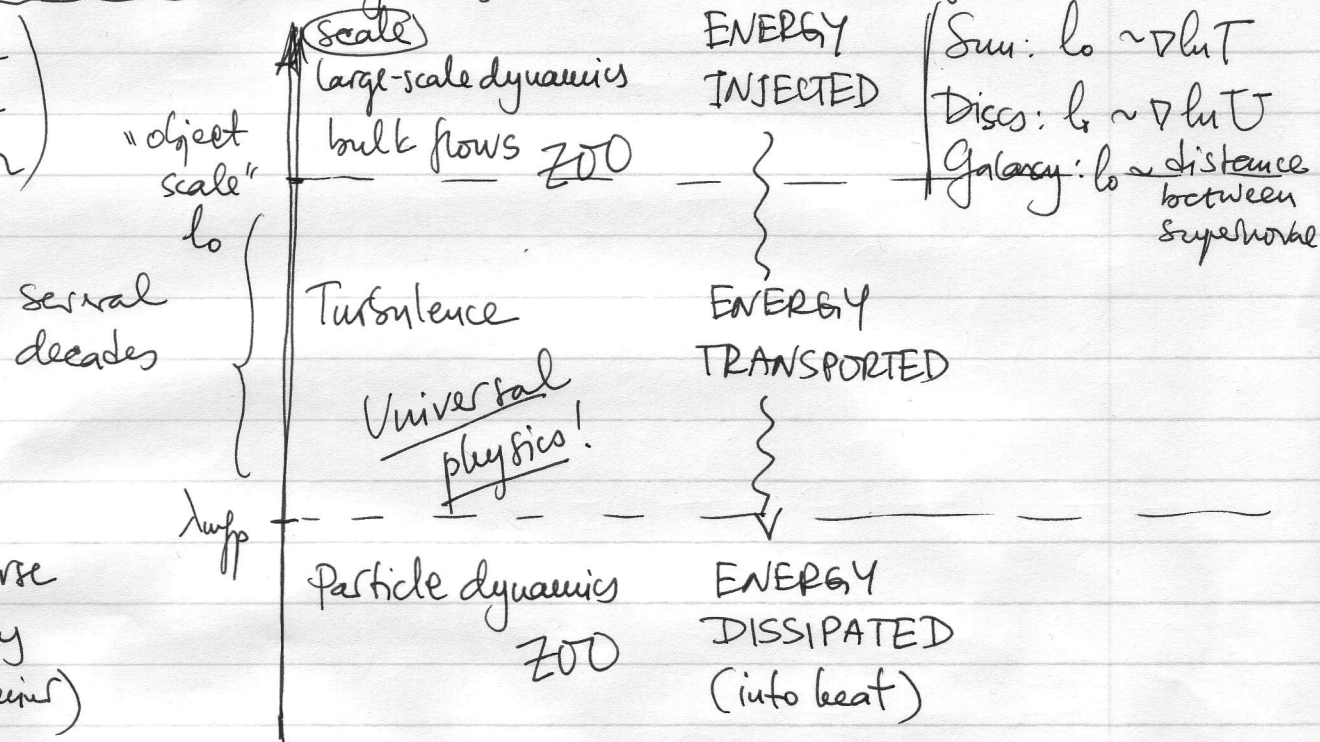 scale
large-scale dynamics
bulk flows ZOO
"object
scale"
l₀
several
decades
Turbulence
Universal
physics!
λmfp
Particle dynamics
ZOO
ENERGY
INJECTED
ENERGY
TRANSPORTED
ENERGY
DISSIPATED
(into heat)
Sun: l₀ ~ ∇ ln T
Discs: l₀ ~ ∇ ln U
Galaxy: l₀ ~ distance
between
supernovae